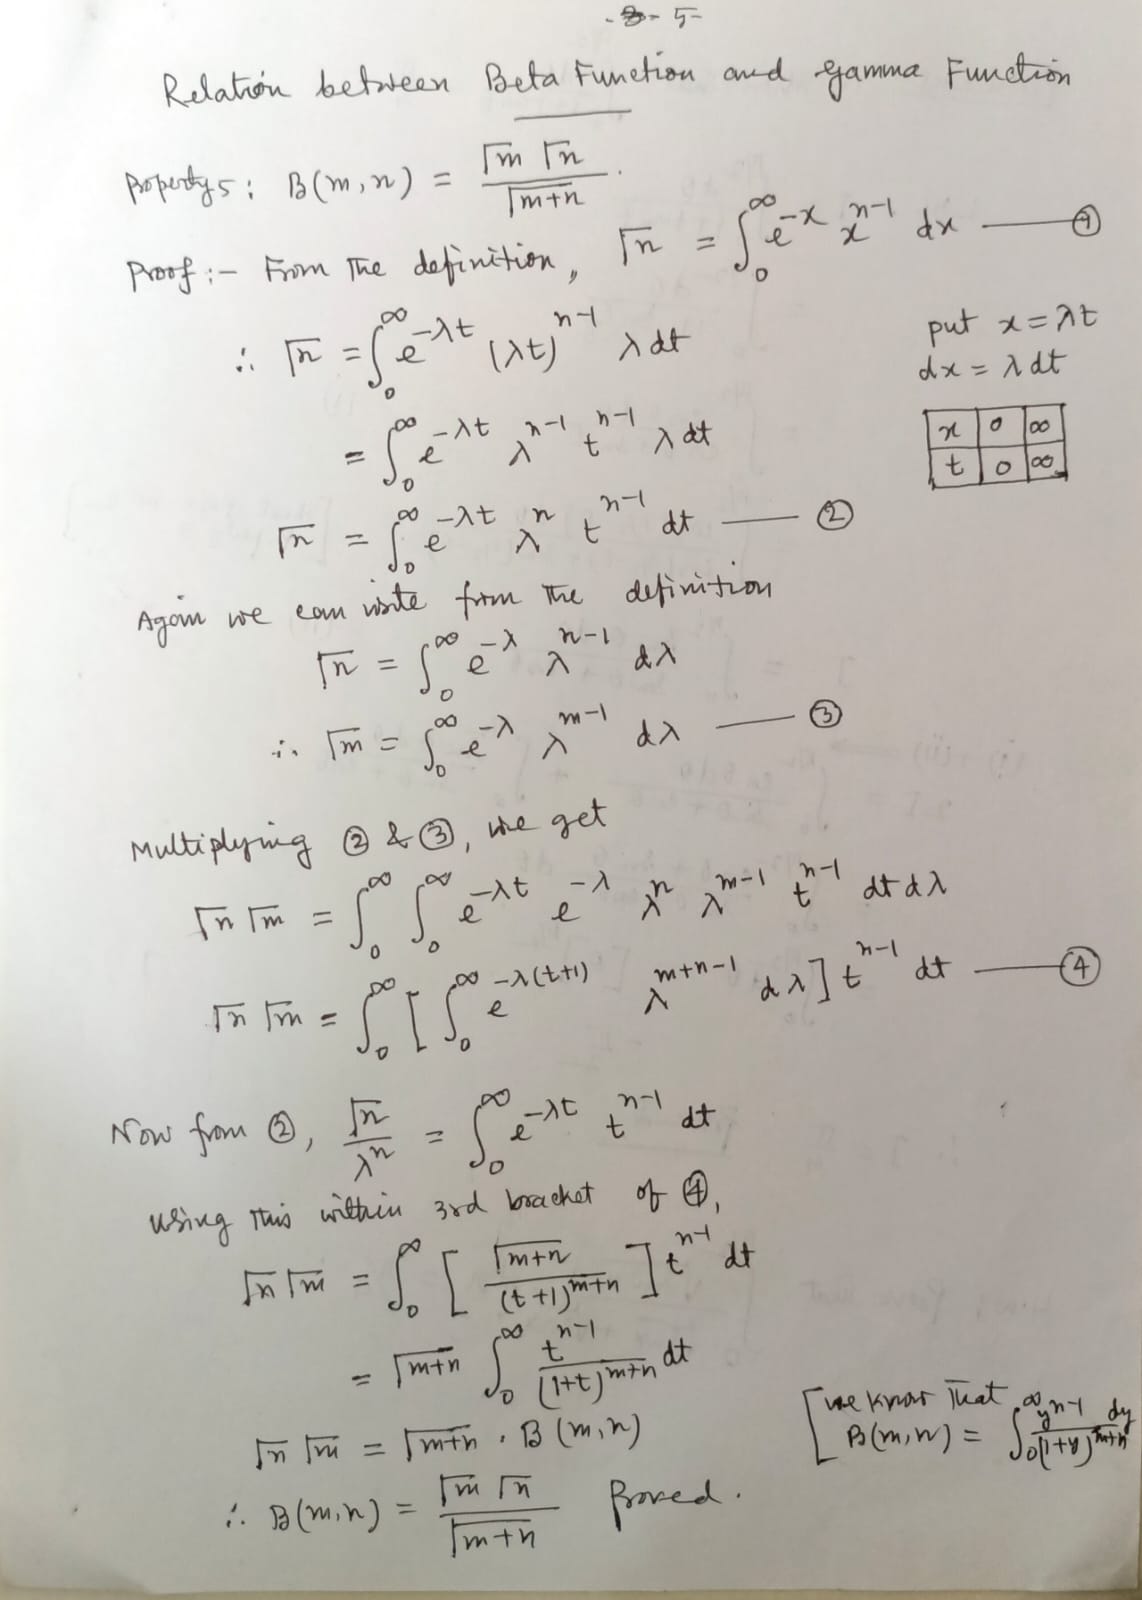 - 5 -
Relation between Beta Function and Gamma Function
Property 5: B(m,n) = Γm Γn / Γm+n .
Proof :- From the definition, Γn = ∫₀^∞ e^-x x^n-1 dx —— ①
∴ Γn = ∫₀^∞ e^-λt (λt)^n-1 λ dt
put x = λt
dx = λ dt
= ∫₀^∞ e^-λt λ^n-1 t^n-1 λ dt
x 0 ∞
t 0 ∞
Γn = ∫₀^∞ e^-λt λ^n t^n-1 dt —— ②
Again we can write from the definition
Γn = ∫₀^∞ e^-λ λ^n-1 dλ
∴ Γm = ∫₀^∞ e^-λ λ^m-1 dλ —— ③
Multiplying ② & ③, we get
Γn Γm = ∫₀^∞ ∫₀^∞ e^-λt e^-λ λ^n λ^m-1 t^n-1 dt dλ
Γn Γm = ∫₀^∞ [ ∫₀^∞ e^-λ(t+1) λ^m+n-1 dλ ] t^n-1 dt —— ④
Now from ②, Γn / λ^n = ∫₀^∞ e^-λt t^n-1 dt
using this within 3rd bracket of ④,
Γn Γm = ∫₀^∞ [ Γm+n / (t+1)^m+n ] t^n-1 dt
= Γm+n ∫₀^∞ t^n-1 / (1+t)^m+n dt
Γn Γm = Γm+n . B(m,n)
[ we know that
B(m,n) = ∫₀^∞ y^n-1 dy / (1+y)^m+n
∴ B(m,n) = Γm Γn / Γm+n Proved.